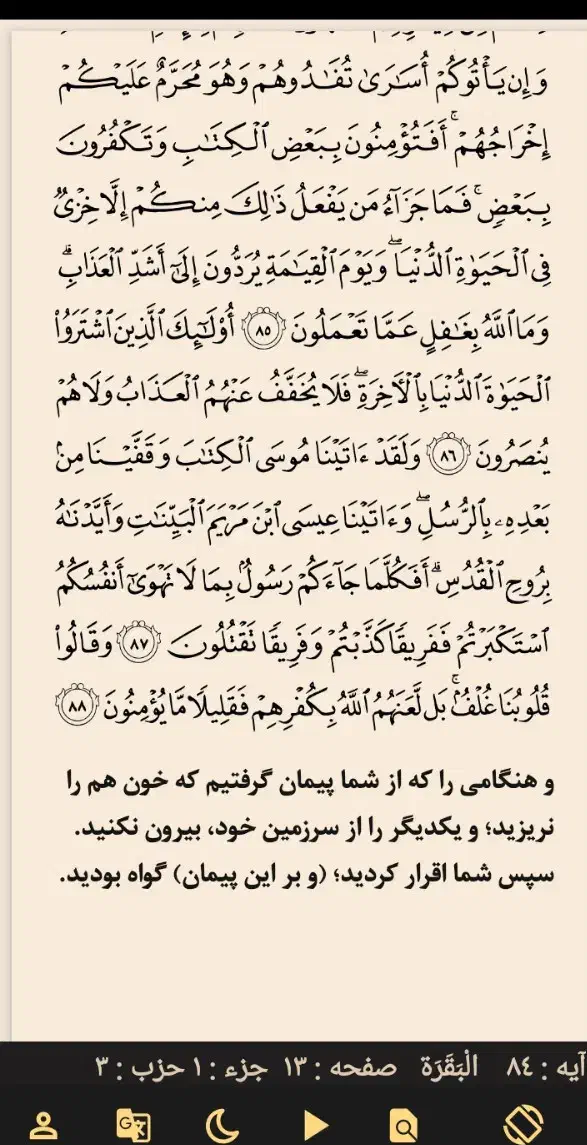 وَإِن يَأْتُوكُمْ أُسَٰرَىٰ تُفَٰدُوهُمْ وَهُوَ مُحَرَّمٌ عَلَيْكُمْ
إِخْرَاجُهُمْ ۚ أَفَتُؤْمِنُونَ بِبَعْضِ ٱلْكِتَٰبِ وَتَكْفُرُونَ
بِبَعْضٍ ۚ فَمَا جَزَآءُ مَن يَفْعَلُ ذَٰلِكَ مِنكُمْ إِلَّا خِزْىٌ
فِى ٱلْحَيَوٰةِ ٱلدُّنْيَا ۖ وَيَوْمَ ٱلْقِيَٰمَةِ يُرَدُّونَ إِلَىٰٓ أَشَدِّ ٱلْعَذَابِ ۗ
وَمَا ٱللَّهُ بِغَٰفِلٍ عَمَّا تَعْمَلُونَ ٨٥ أُو۟لَٰٓئِكَ ٱلَّذِينَ ٱشْتَرَوُا۟
ٱلْحَيَوٰةَ ٱلدُّنْيَا بِٱلْـَٔاخِرَةِ ۖ فَلَا يُخَفَّفُ عَنْهُمُ ٱلْعَذَابُ وَلَا هُمْ
يُنصَرُونَ ٨٦ وَلَقَدْ ءَاتَيْنَا مُوسَى ٱلْكِتَٰبَ وَقَفَّيْنَا مِنۢ
بَعْدِهِۦ بِٱلرُّسُلِ ۖ وَءَاتَيْنَا عِيسَى ٱبْنَ مَرْيَمَ ٱلْبَيِّنَٰتِ وَأَيَّدْنَٰهُ
بِرُوحِ ٱلْقُدُسِ ۗ أَفَكُلَّمَا جَآءَكُمْ رَسُولٌۢ بِمَا لَا تَهْوَىٰٓ أَنفُسُكُمُ
ٱسْتَكْبَرْتُمْ فَفَرِيقًا كَذَّبْتُمْ وَفَرِيقًا تَقْتُلُونَ ٨٧ وَقَالُوا۟
قُلُوبُنَا غُلْفٌۢ ۚ بَل لَّعَنَهُمُ ٱللَّهُ بِكُفْرِهِمْ فَقَلِيلًا مَّا يُؤْمِنُونَ ٨٨
و هنگامی را که از شما پیمان گرفتیم که خون هم را
نریزید؛ و یکدیگر را از سرزمین خود، بیرون نکنید.
سپس شما اقرار کردید؛ (و بر این پیمان) گواه بودید.
آیه : ٨٤ الْبَقَرَة صفحه : ١٣ جزء : ١ حزب : ٣